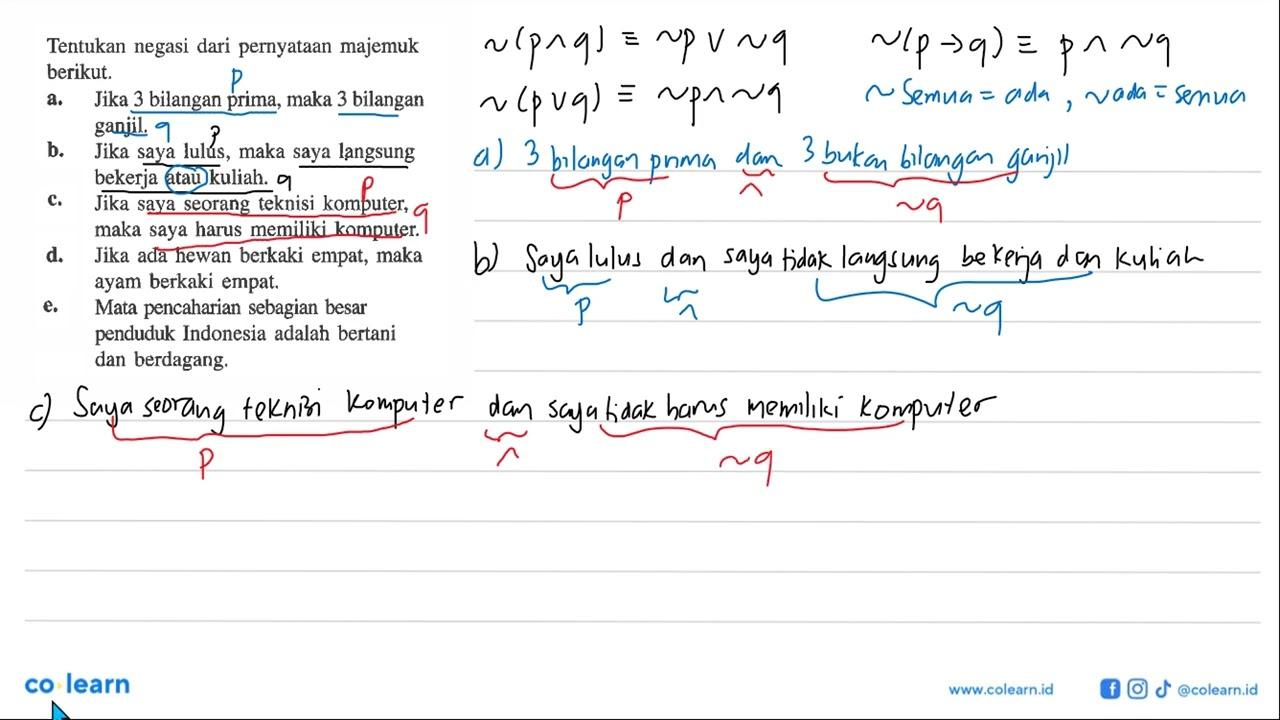 Tentukan negasi dari pernyataan majemuk
berikut.
p
a. Jika 3 bilangan prima, maka 3 bilangan
ganjil. q
p
b. Jika saya lulus, maka saya langsung
bekerja atau kuliah. q
p
c. Jika saya seorang teknisi komputer, q
maka saya harus memiliki komputer.
d. Jika ada hewan berkaki empat, maka
ayam berkaki empat.
e. Mata pencaharian sebagian besar
penduduk Indonesia adalah bertani
dan berdagang.
~(p∧q) ≡ ~p ∨ ~q
~(p→q) ≡ p ∧ ~q
~(p∨q) ≡ ~p∧~q
~semua = ada, ~ada = semua
a) 3 bilangan prima dan 3 bukan bilangan ganjil
p ∧ ~q
b) Saya lulus dan saya tidak langsung bekerja dan kuliah
p ∧ ~q
c) Saya seorang teknisi komputer dan saya tidak harus memiliki komputer
p ∧ ~q
co learn
www.colearn.id @colearn.id